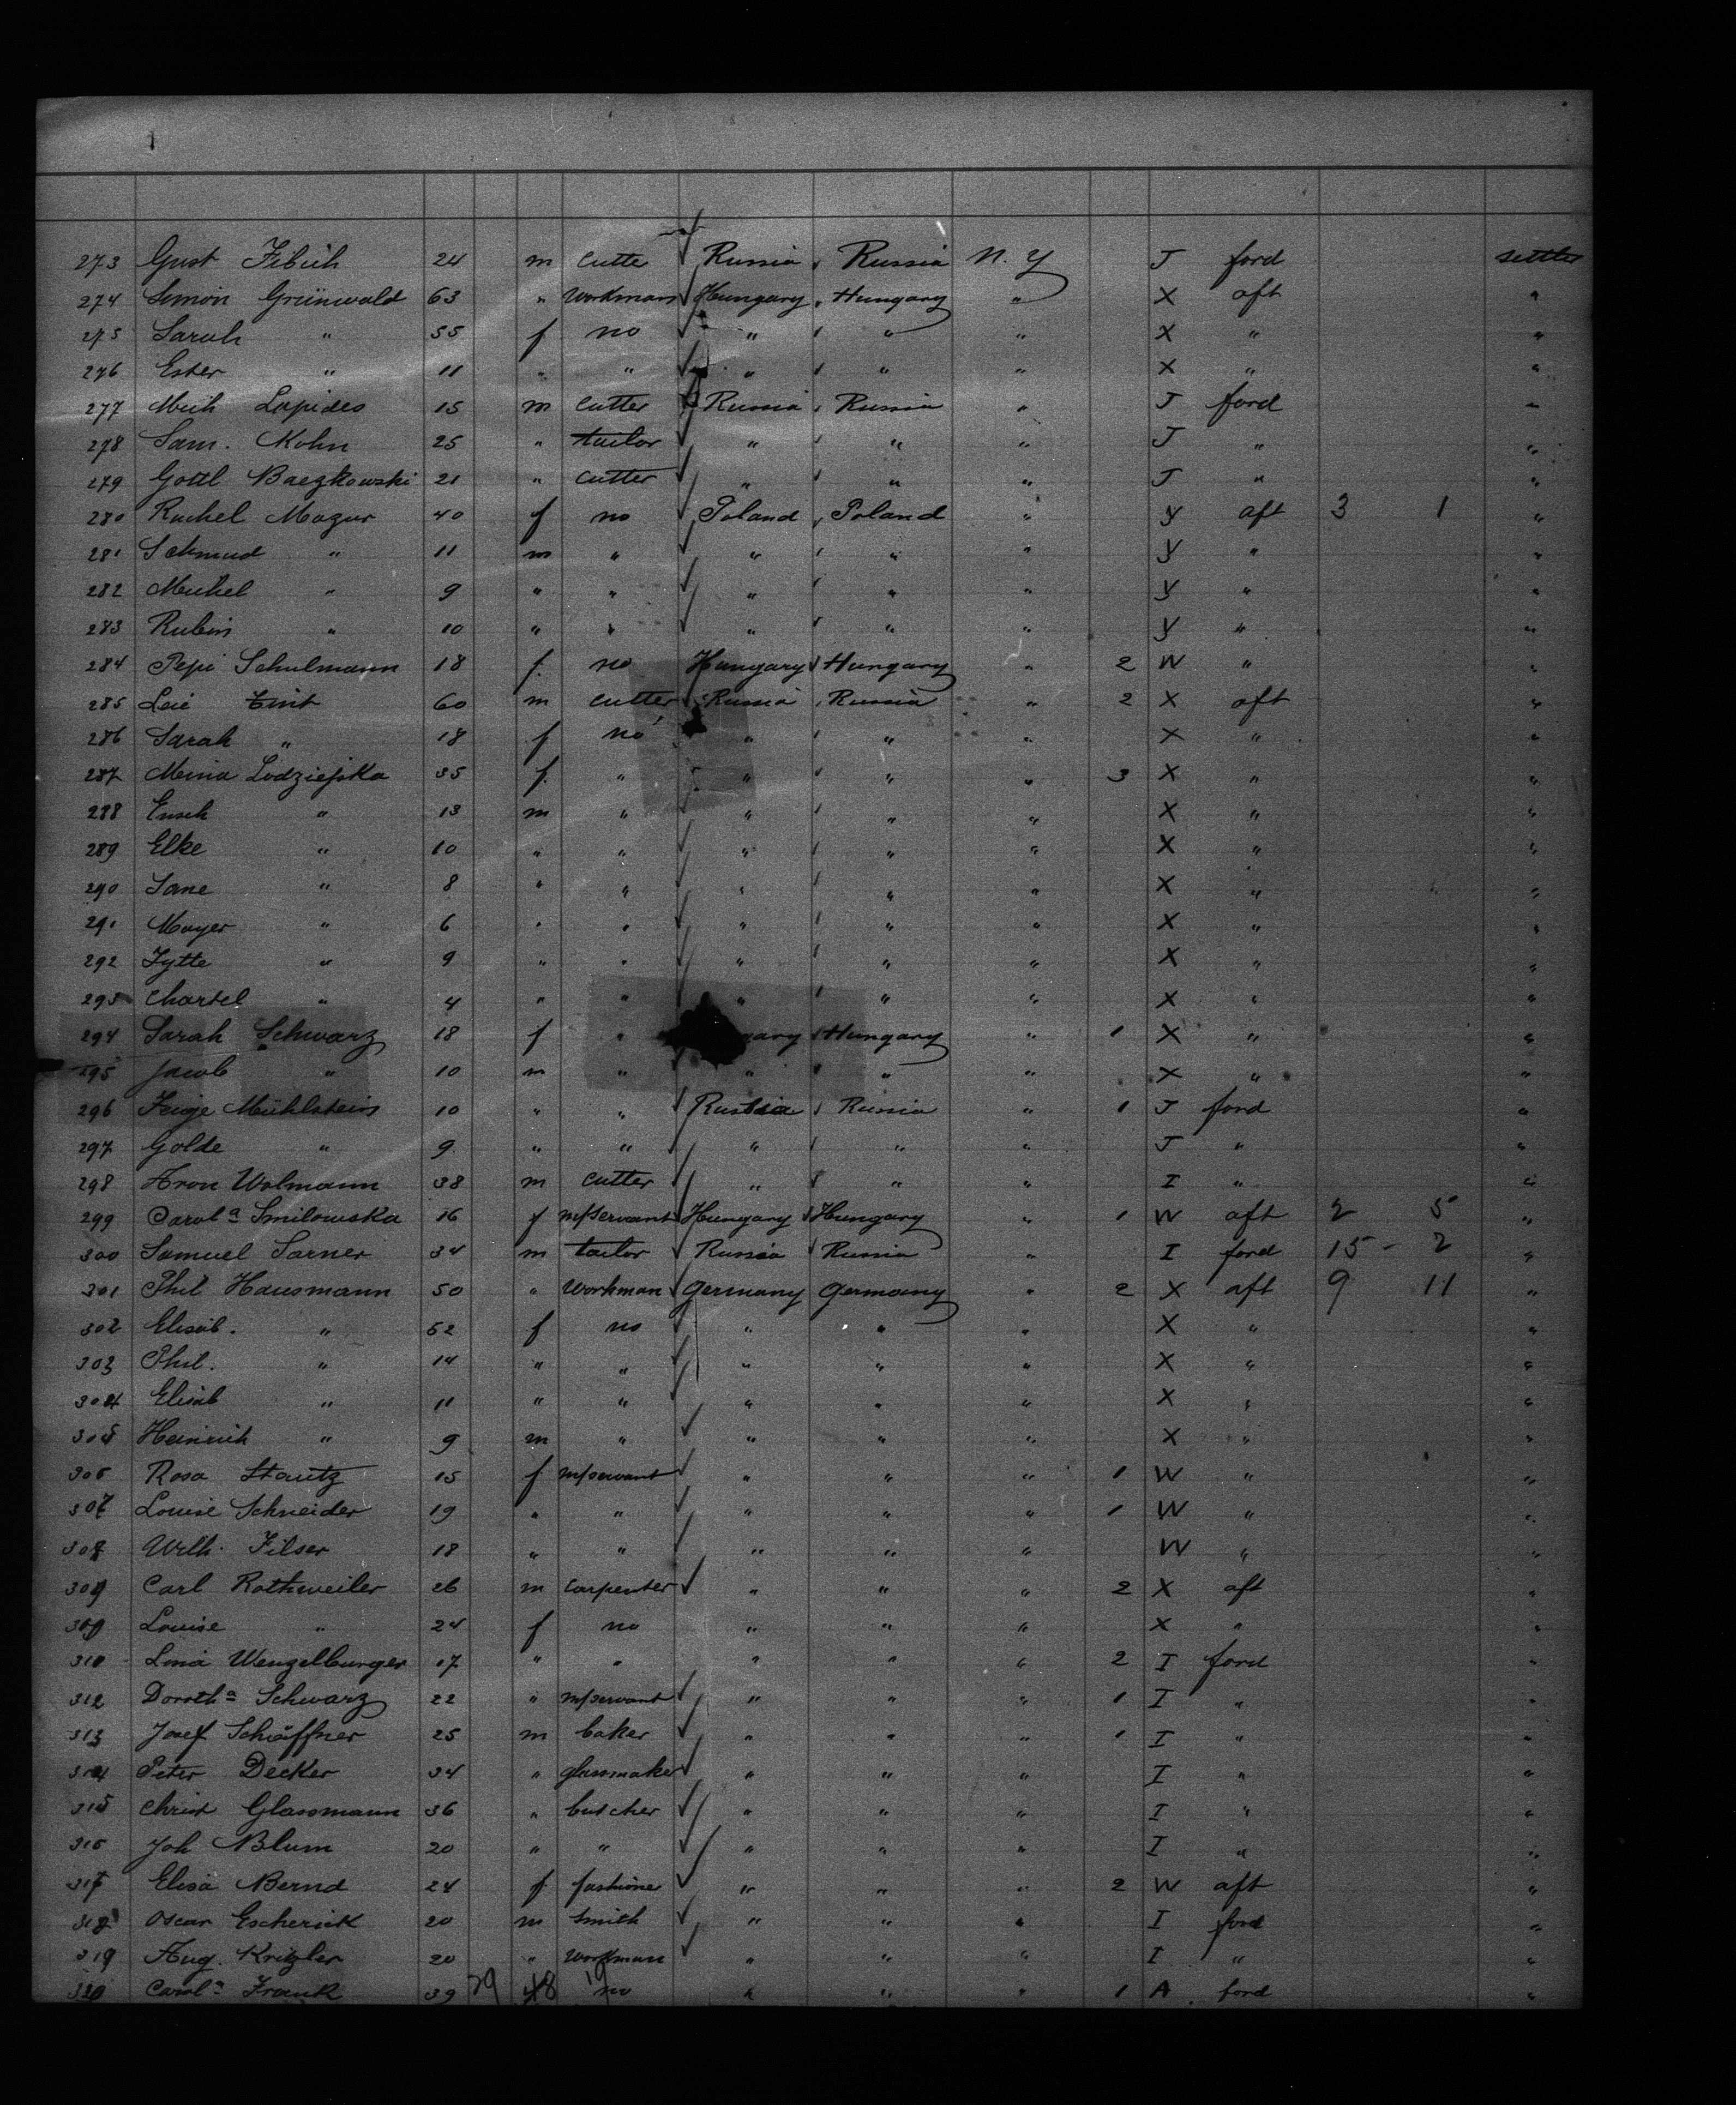 273 Gust Fibich 24 m cutter Russia Russia N. Y J ford settler
274 Simon Grünwald 63 " Workman Hungary Hungary " X aft "
275 Sarah " 55 f no " " " X " "
276 Ester " 11 " " " " " X " "
277 Mich Lapides 15 m cutter Russia Russia " J ford "
278 Sam. Kohn 25 " tailor " " " J " "
279 Gottl Baczkowski 21 " cutter " " " J " "
280 Rachel Mazur 40 f no Poland Poland " y aft 3 1 "
281 " 11 m " " " " y " "
282 Michel " 9 " " " " " y " "
283 Rubin " 10 " " " " " y " "
284 Pepi Schulmann 18 f. no Hungary Hungary " 2 W " "
285 60 m cutter Russia Russia " 2 X aft "
286 Sarah " 18 f no " " " X " "
287 35 f. " " " " 3 X " "
288 " 13 m " " " " X " "
289 Elke " 10 " " " " " X " "
290 " 8 " " " " " X " "
291 Mayer " 6 " " " " " X " "
292 " 9 " " " " " X " "
293 " 4 " " " " " X " "
294 Sarah Schwarz 18 f " gary Hungary " 1 X " "
295 Jacob " 10 m " " " " X " "
296 Mühlstein 10 " " Russia Russia " 1 J ford "
297 Golde " 9 " " " " " J " "
298 Aron Wolmann 38 m cutter " " " I " "
299 Carola Smilowska 16 f m/servant Hungary Hungary " 1 W aft 2 5 "
300 Samuel Sarner 34 m tailor Russia Russia " I ford 15 - 2 "
301 Phil Hausmann 50 " Workman Germany Germany " 2 X aft 9 11 "
302 Elisab. " 52 f no " " " X " "
303 Phil. " 14 " " " " " X " "
304 Elisab " 11 " " " " " X " "
305 Heinrich " 9 m " " " " X " "
306 Rosa Stautz 15 f m/servant " " " 1 W " "
307 Louise Schneider 19 " " " " " 1 W " "
308 Wilh. Filser 18 " " " " " W " "
309 Carl Rothweiler 26 m carpenter " " " 2 X aft "
Louise " 24 f no " " " X " "
Lina Wenzelburger 17 " " " " " 2 I ford "
312 Doroth a Schwarz 22 " m/servant " " " 1 I " "
313 Josef Schäffner 25 m baker " " " 1 I " "
314 Peter Decker 34 " glassmaker " " " I " "
315 Christ Glassmann 36 " butcher " " " I " "
316 Joh Blum 20 " " " " " I " "
317 Elisa Bernd 24 f fashioner " " " 2 W aft "
318 Oscar Escherick 20 m Smith " " " I ford "
319 Aug. Krigler 20 " workman " " " I " "
320 Carola Frank 39 29 48 19 no " " " 1 A ford "